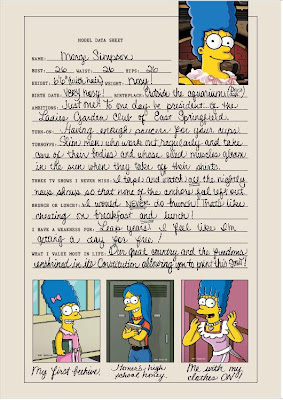 MODEL DATA SHEET
NAME: Marge Simpson
BUST: 26 WAIST: 26 HIPS: 26
HEIGHT: (with hair) WEIGHT: Nosy!
BIRTH DATE: Very nosy! BIRTHPLACE: Outside the aquarium
AMBITIONS: Just one! To one day be president of the
Ladies Garden Club of East Springfield.
TURN-ON: Having enough saucers for your cups!
TURNOFFS: Skin men who work out regularly and take
care of their bodies and whose sleek muscles gleam
in the sun when they take off their shirts.
THREE TV SHOWS I NEVER MISS: I tape and watch all the nightly
news shows so that none of the anchors feel left out.
BRUNCH OR LUNCH: I would never do brunch! That's like
cheating on breakfast and lunch!
I HAVE A WEAKNESS FOR: Leap years! I feel like I'm
getting a day for free!
WHAT I VALUE MOST IN LIFE: Our great country and the freedoms
enshrined in its Constitution allowing you to print this
My first beehive.
Homer's high
school honey.
Me with my
clothes ON!